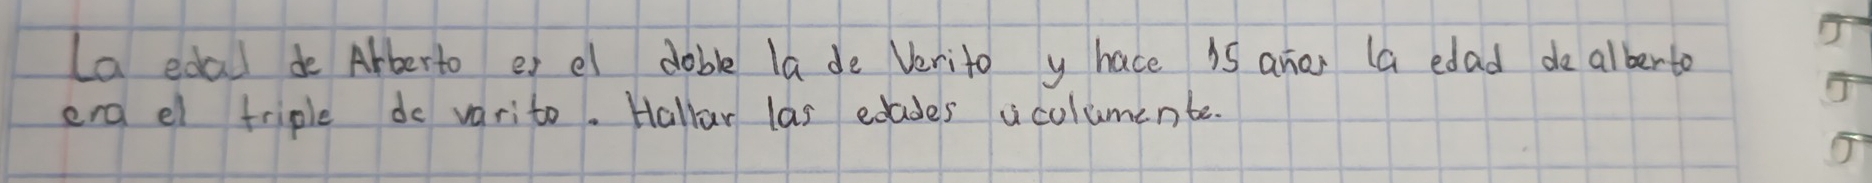 La edad de Alberto es el doble la de Verito y hace 15 años la edad de alberto
era el triple de varito. Hallar las edades acolumente.